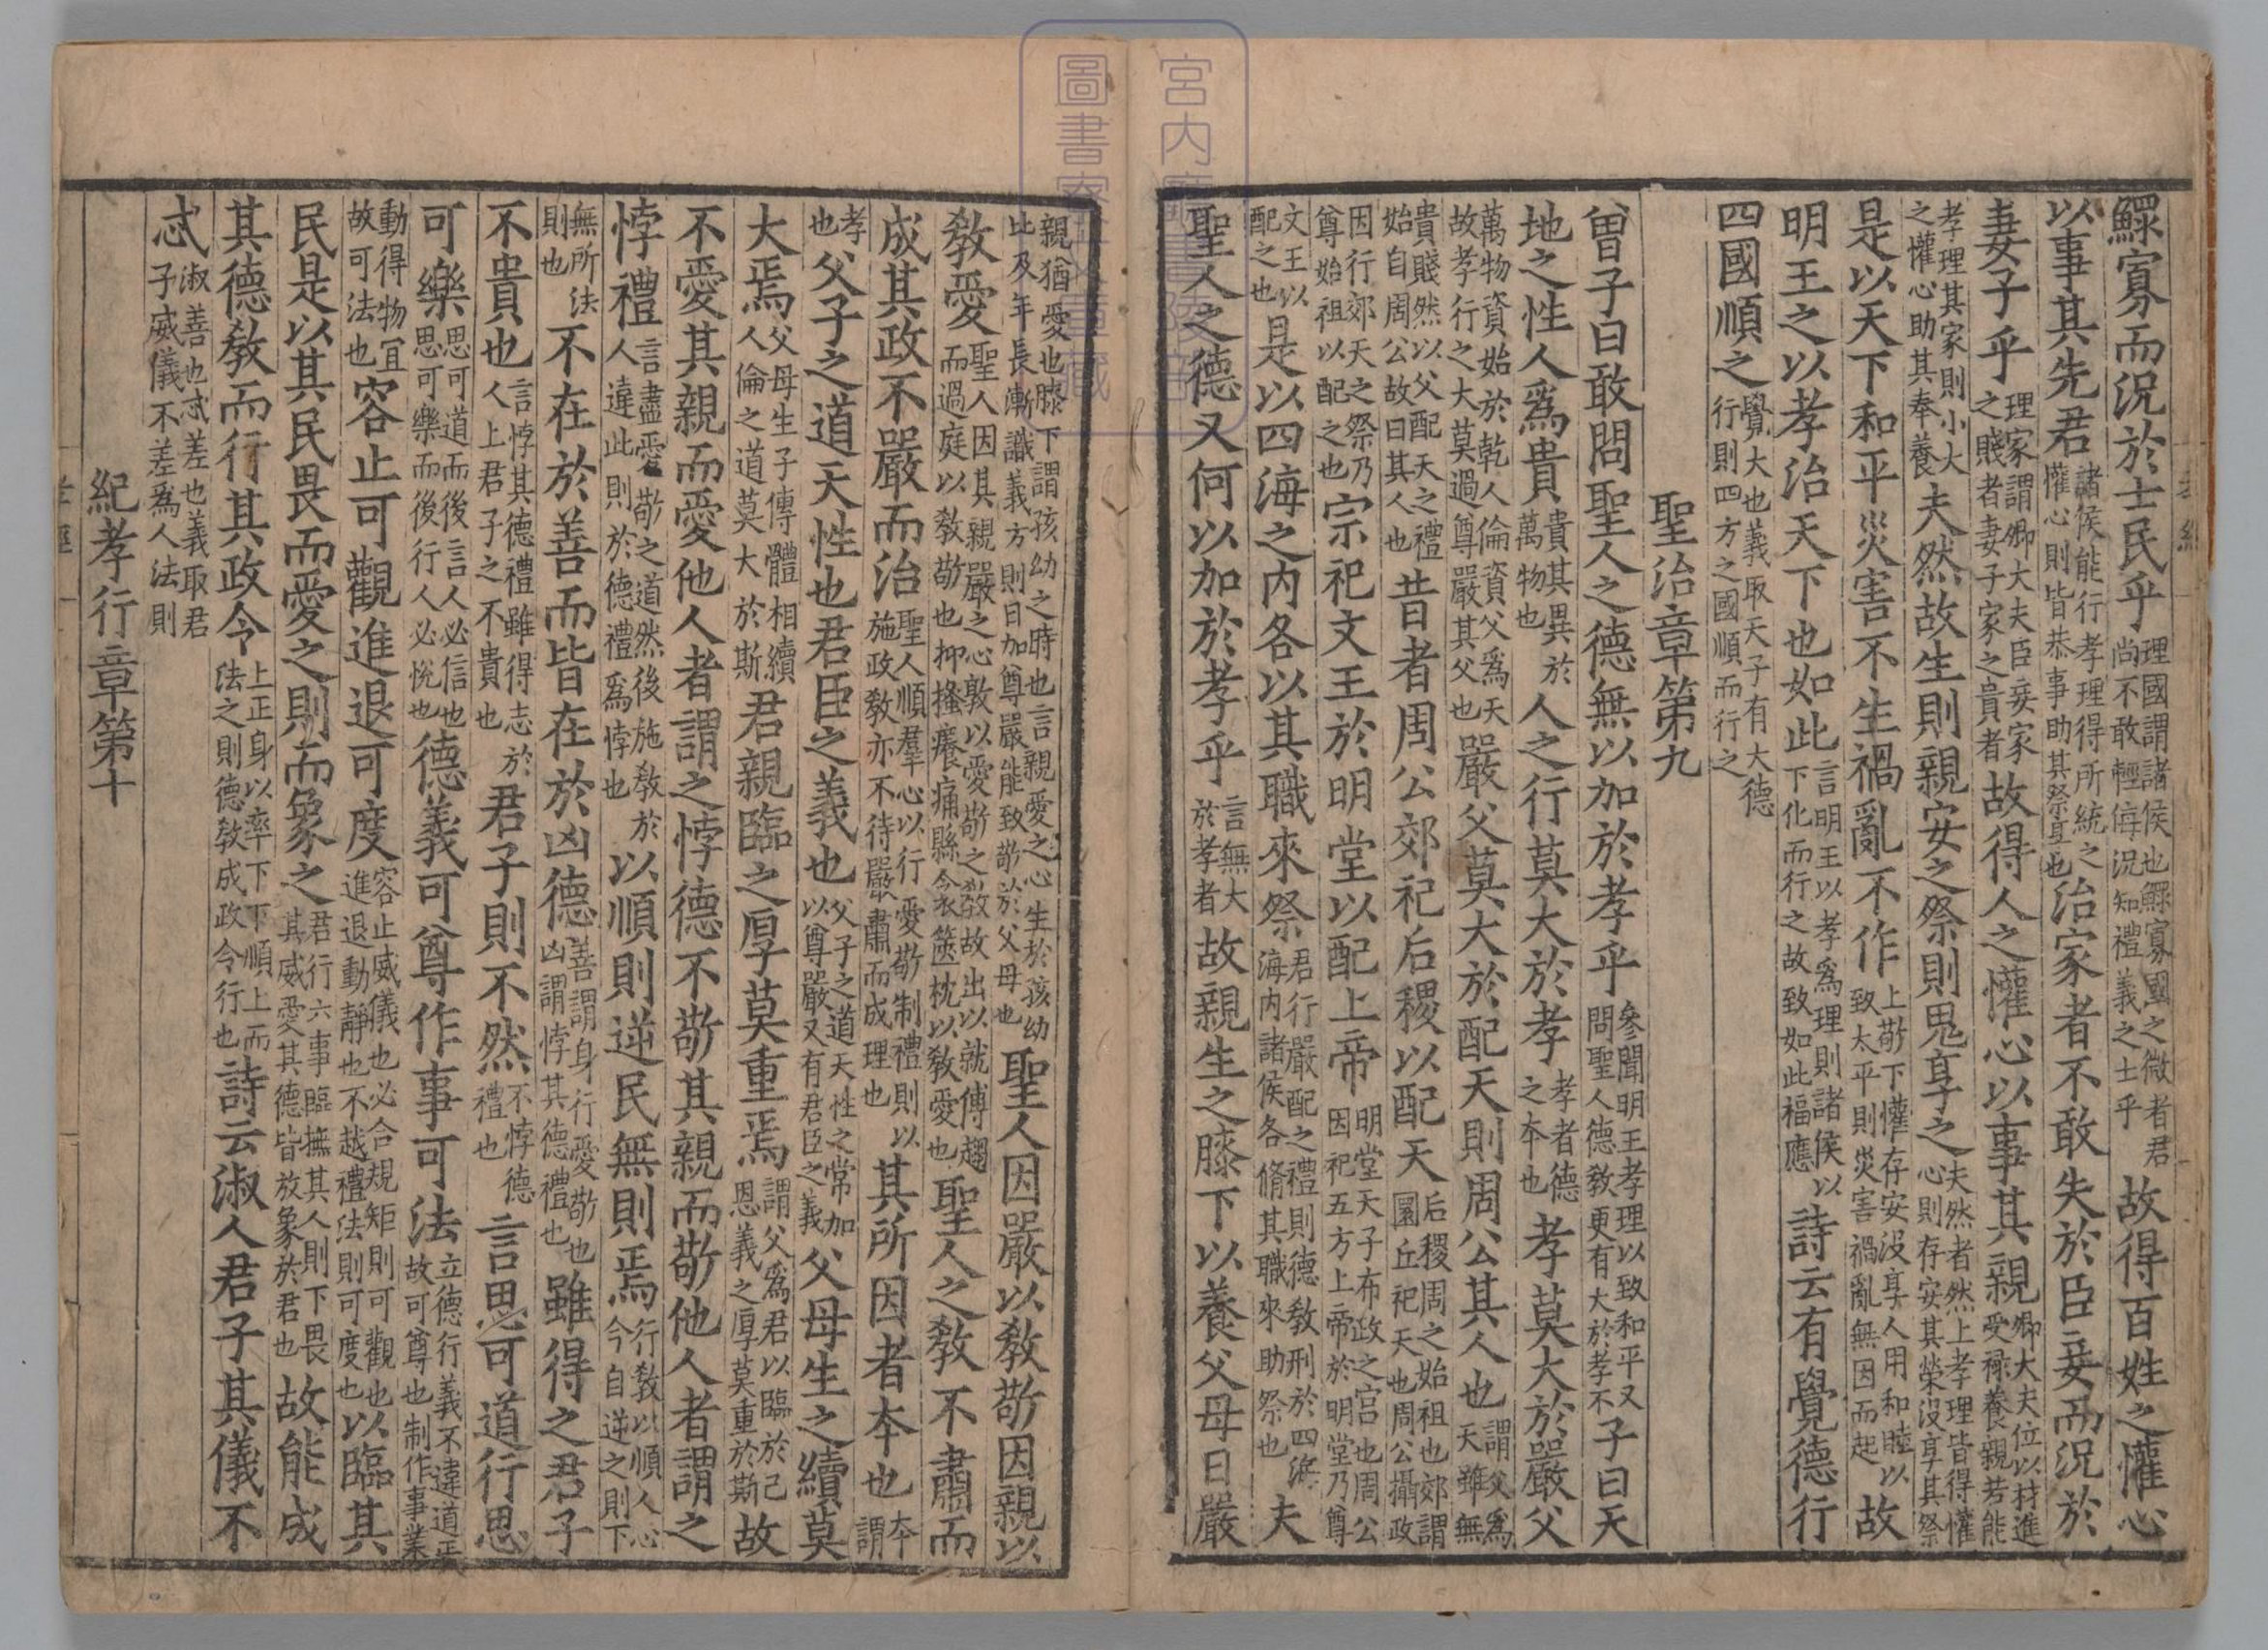 鰥寡而況於士民乎理國謂諸侯也鰥寡國之微者君尚不敢輕侮況知禮義之士乎故得百姓之懽心
以事其先君諸侯能行孝理得所統之懽心則皆恭事助其祭享也治家者不敢失於臣妾而況於
妻子乎理家謂卿大夫臣妾家之賤者妻子家之貴者故得人之懽心以事其親卿大夫位以材進受祿養親若能
孝理其家則小大之懽心助其奉養夫然故生則親安之祭則鬼享之夫然者然上孝理皆得懽心則存安其榮沒享其祭
是以天下和平災害不生禍亂不作上敬下懽存安沒享人用和睦以致太平則災害禍亂無因而起故
明王之以孝治天下也如此言明王以孝為理則諸侯以下化而行之故致如此福應詩云有覺德行
四國順之覺大也義取天子有大德行則四方之國順而行之
聖治章第九
曾子曰敢問聖人之德無以加於孝乎參聞明王孝理以致和平又問聖人德教更有大於孝不子曰天
地之性人為貴貴其異於萬物也人之行莫大於孝孝者德之本也孝莫大於嚴父
萬物資始於乾人倫資父為天故孝行之大莫過尊嚴其父也嚴父莫大於配天則周公其人也謂父為天雖無
貴賤然以父配天之禮始自周公故曰其人也昔者周公郊祀后稷以配天后稷周之始祖也郊謂圜丘祀天也周公攝政
因行郊天之祭乃尊始祖以配之也宗祀文王於明堂以配上帝明堂天子布政之宮也周公因祀五方上帝於明堂乃尊
文王以配之也是以四海之內各以其職來祭君行嚴配之禮則德教刑於四海海內諸侯各脩其職來助祭也夫
聖人之德又何以加於孝乎言無大於孝者故親生之膝下以養父母日嚴
親猶愛也膝下謂孩幼之時也言親愛之心生於孩幼比及年長漸識義方則日加尊嚴能致敬於父母也聖人因嚴以教敬因親以
教愛聖人因其親嚴之心敦以愛敬之教故出以就傅趨而過庭以教敬也抑搔癢痛縣衾篋枕以教愛也聖人之教不肅而
成其政不嚴而治聖人順羣心以行愛敬制禮則以施政教亦不待嚴肅而成理也其所因者本也本謂
孝也父子之道天性也君臣之義也父子之道天性之常加以尊嚴又有君臣之義父母生之續莫
大焉父母生子傳體相續人倫之道莫大於斯君親臨之厚莫重焉謂父為君以臨於己恩義之厚莫重於斯故
不愛其親而愛他人者謂之悖德不敬其親而敬他人者謂之
悖禮言盡愛敬之道然後施教於人違此則於德禮為悖也以順則逆民無則焉行教以順人心今自逆之則下
無所法則也不在於善而皆在於凶德善謂身行愛敬也凶謂悖其德禮也雖得之君子
不貴也言悖其德禮雖得志於人上君子之不貴也君子則不然不悖德禮也言思可道行思
可樂思可道而後言人必信也思可樂而後行人必悅也德義可尊作事可法立德行義不違道正故可尊也制作事業
動得物宜故可法也容止可觀進退可度容止威儀也必合規矩則可觀也進退動靜也不越禮法則可度也以臨其
民是以其民畏而愛之則而象之君行六事臨撫其人則下畏其威愛其德皆放象於君也故能成
其德教而行其政令上正身以率下下順上而法之則德教成政令行也詩云淑人君子其儀不
忒淑善也忒差也義取君子威儀不差為人法則
紀孝行章第十